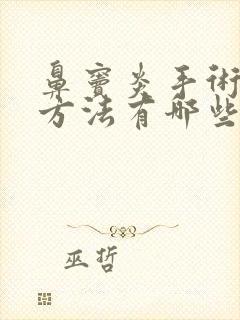 鼻窦炎手术
方法有哪些
巫哲